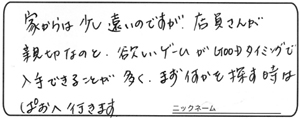 家からは少し遠いのですが店員さんが
親切なのと、欲しいゲームがGOODタイミングで
入手できることが多く、まず何かを探す時は
ぱおへ行きます
ニックネーム